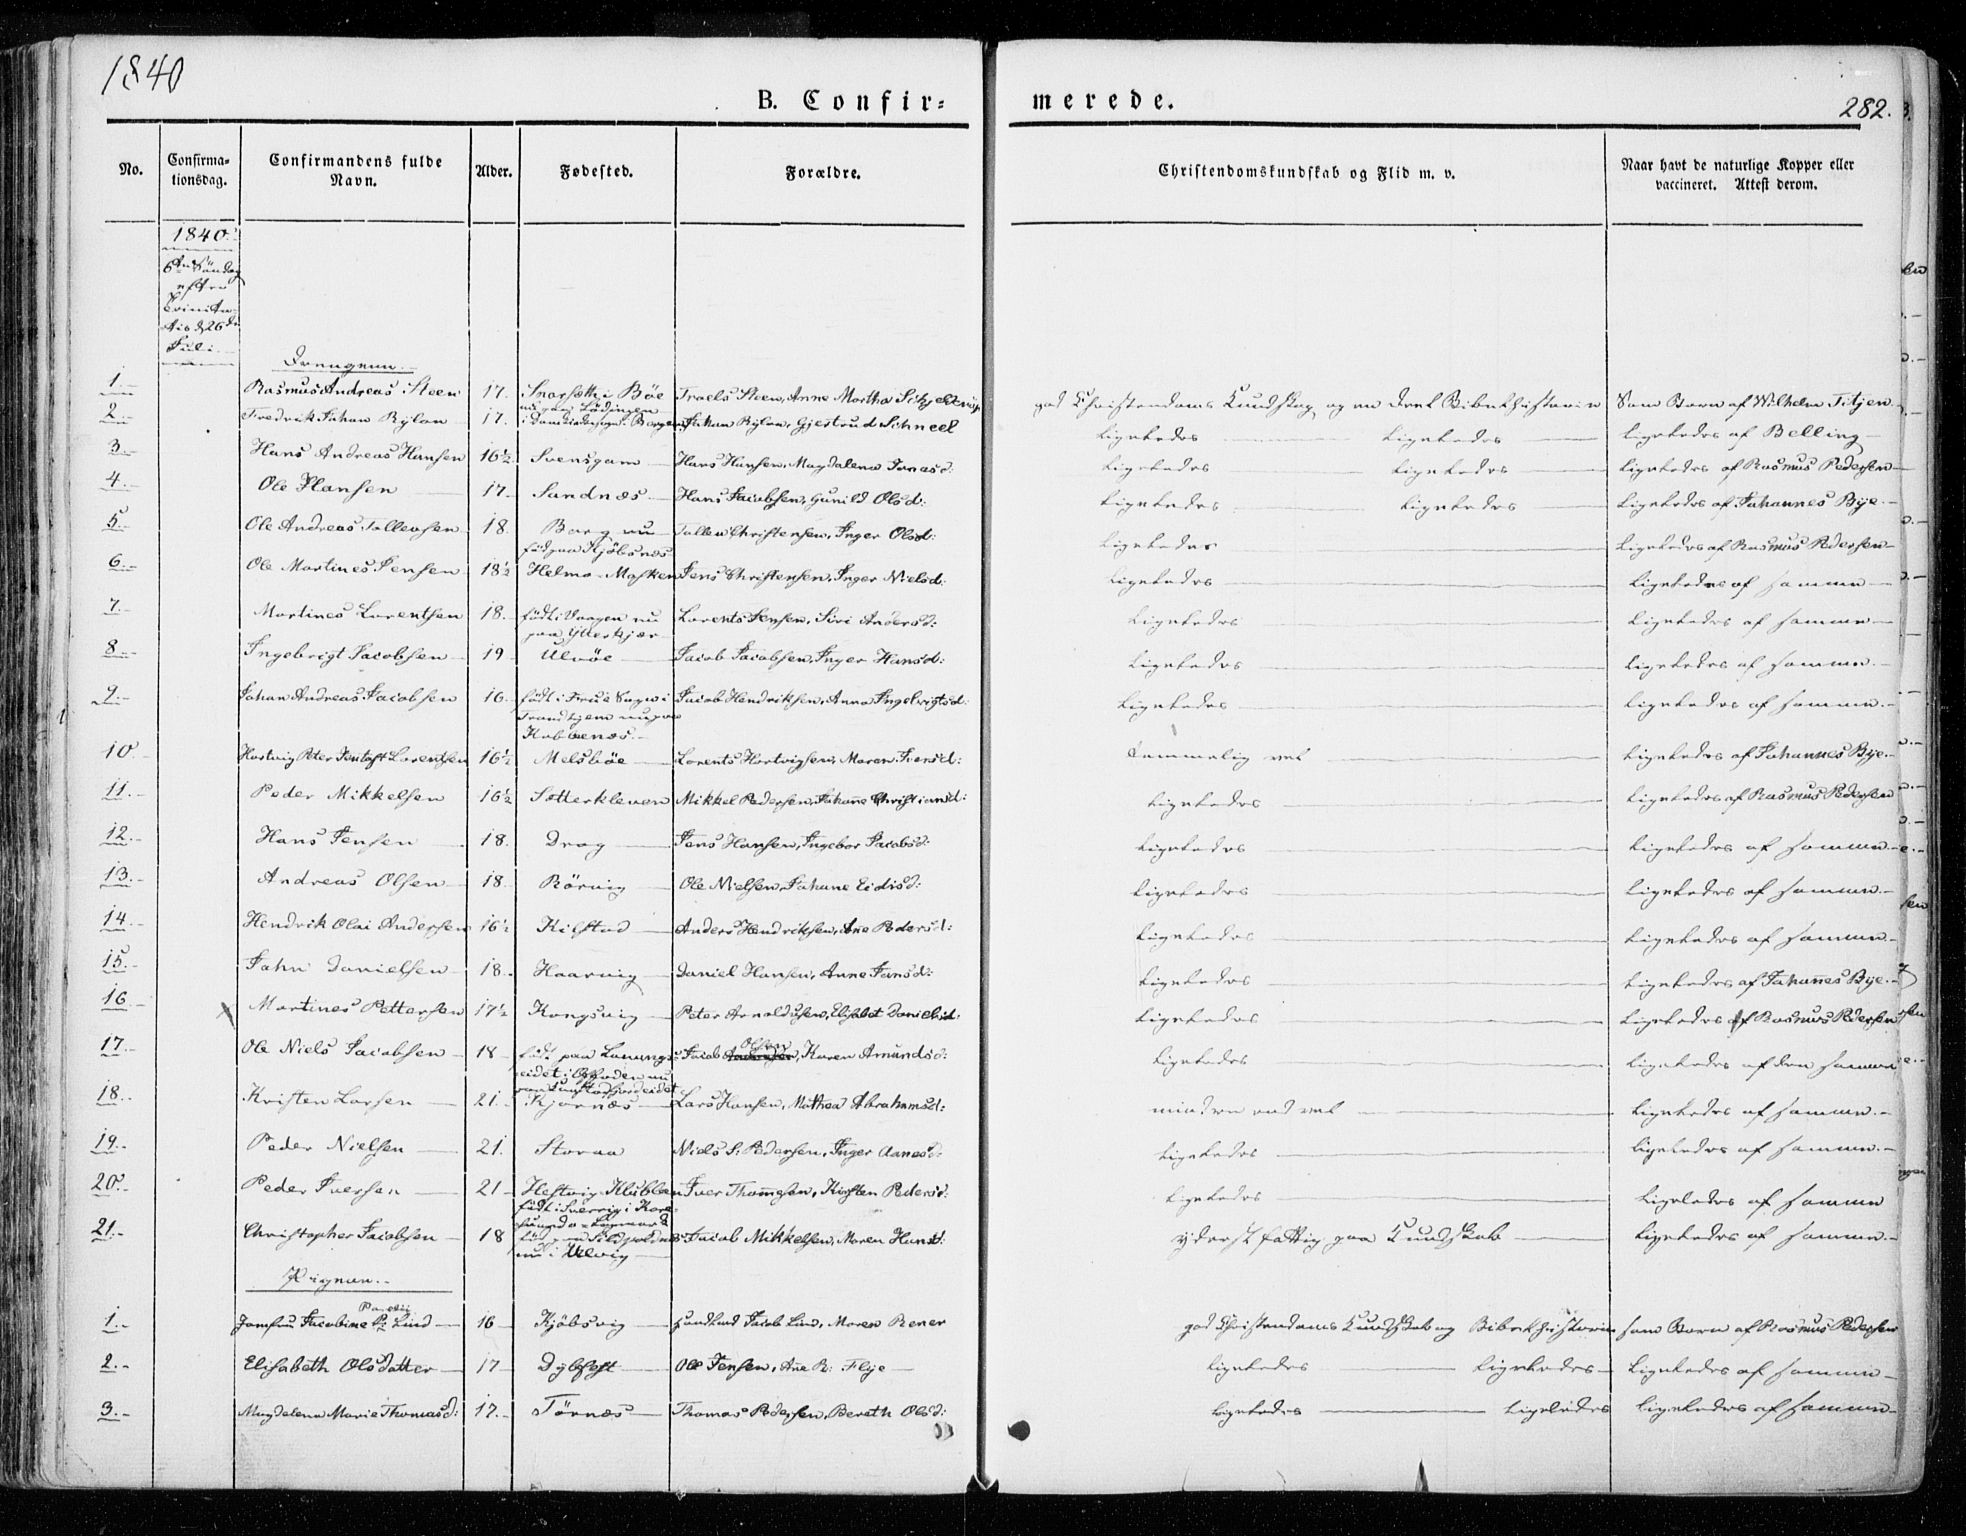 1840
B. Confir=
merede.
282.
No.
Confirma-
tionsdag.
Confirmandens fulde
Navn.
Alder.
Fødested.
Forældre.
Christendomskundskab og Flid m. v.
Naar havt de naturlige Kopper eller
vaccineret. Attest derom.
1840.
6te Søndag
efter
Trinita-
tis d 26de
Juli
Drengene.
1. Rasmus Andreas Steen 17. i Böe Troels Steen, Anne Martha god Christendoms Kundskap og Som Barn af Wilhelm Titjen
nu paa Lödingen
2. Fredrik Johan Rylon 17. i Johan Rylon, Gjestrud Schneel Ligeledes Ligeledes Ligeledes af Belling
3. Hans Andreas Hansen 16½ Svensgam Hans Hansen, Magdalena Jonasd: Ligeledes Ligeledes Ligeledes af Rasmus Pedersen
4. Ole Hansen 17 Sandnæs Hans Jacobsen, Gunild Olsd: Ligeledes Ligeledes Ligeledes af Johannes Bye
5. Ole Andreas Tollevsen 18. Borg nu Tollev Christensen, Inger Olsd: Ligeledes Ligeledes af Rasmus Pedersen
född paa Kjöbsnæs
6. Ole Martines Jensen 18½ Helmo-Masken Jens Christensen, Inger Nielsd: Ligeledes Ligeledes af samme
7. Martines Lorentsen 18. född i Vaagen nu Lorents Jensen, Siri Andersd: Ligeledes Ligeledes af samme
paa Ytterkjær
8. Ingebrigt Jacobsen 19 Ulvöe Jacob Jacobsen, Inger Hansd: Ligeledes Ligeledes af samme.
9. Johan Andreas Jacobsen 16. født i Frue Sogn i Jacob Hendriksen, Anna Ingebrigtsd: Ligeledes Ligeledes af samme.
Trondhjem nu paa
Kobbenæs.
10. Hartvig Peter Lorentsen 16½ Melsböe Lorents Hartvigsen, Maren Iversd: temmelig vel Ligeledes af Johannes Bye.
11. Peder Mikkelsen 16½ Sætterkleven Mikkel Pedersen, Johanne Christiansd: Ligeledes Ligeledes af Rasmus Pedersen
12. Hans Jensen 18. Drag Jens Hansen, Ingebor Jacobsd: Ligeledes Ligeledes af samme.
13. Andreas Olsen 18. Rörvig Ole Nielsen, Johane Eidisd: Ligeledes Ligeledes af samme.
14. Hendrik Olai Andersen 16½ Kilstad Anders Hendriksen, Ane Pedersd: Ligeledes Ligeledes af samme.
15. John Danielsen 18. Haarvig Daniel Hansen, Anne Jonsd: Ligeledes Ligeledes af Johannes Bye.
16 Martines Pettersen 17½ Kongsvig Peter Arnoldusen, Elisabet Danielsd: Ligeledes Ligeledes af Rasmus Pedersen
17. Ole Niels Jacobsen 18 født paa Jacob Olsen, Karen Amundsd: Ligeledes Ligeledes af den samme
eidet i Ofoden nu
18. Kristen Larsen 21. Kjærnæs Lars Hansen, Mathea Abrahamsd: mindre end vel Ligeledes af samme.
19. Peder Nielsen 21. Storaa Niels S: Pedersen, Inger Aanesd: Ligeledes Ligeledes af samme.
20. Peder Iversen 21 Hestvig Klubben Iver Thomesen, Kirsten Pedersd: Ligeledes Ligeledes af samme
født i Sverrig i
21. Christopher Jacobsen 18 Jacob Mikkelsen, Maren Hansd: yderst fattig paa Kundskab Ligeledes af samme.
nu i Ulvig
Pigerne.
1. Jomfru Jacobine Lind 16 Kjöbsvig Jacob Lind, Maren Rener god Christendoms Kundskab og Bibelhistorie som Barn af Rasmus Pedersen
2. Elisabeth Olsdatter 17 Ole Jensen, Ane R: Flye Ligeledes Ligeledes Ligeledes af samme
3. Magdalena Marie Thomasd: 17. Törnæs Thomas Pedersen, Bereth Olsd: Ligeledes Ligeledes Ligeledes af samme